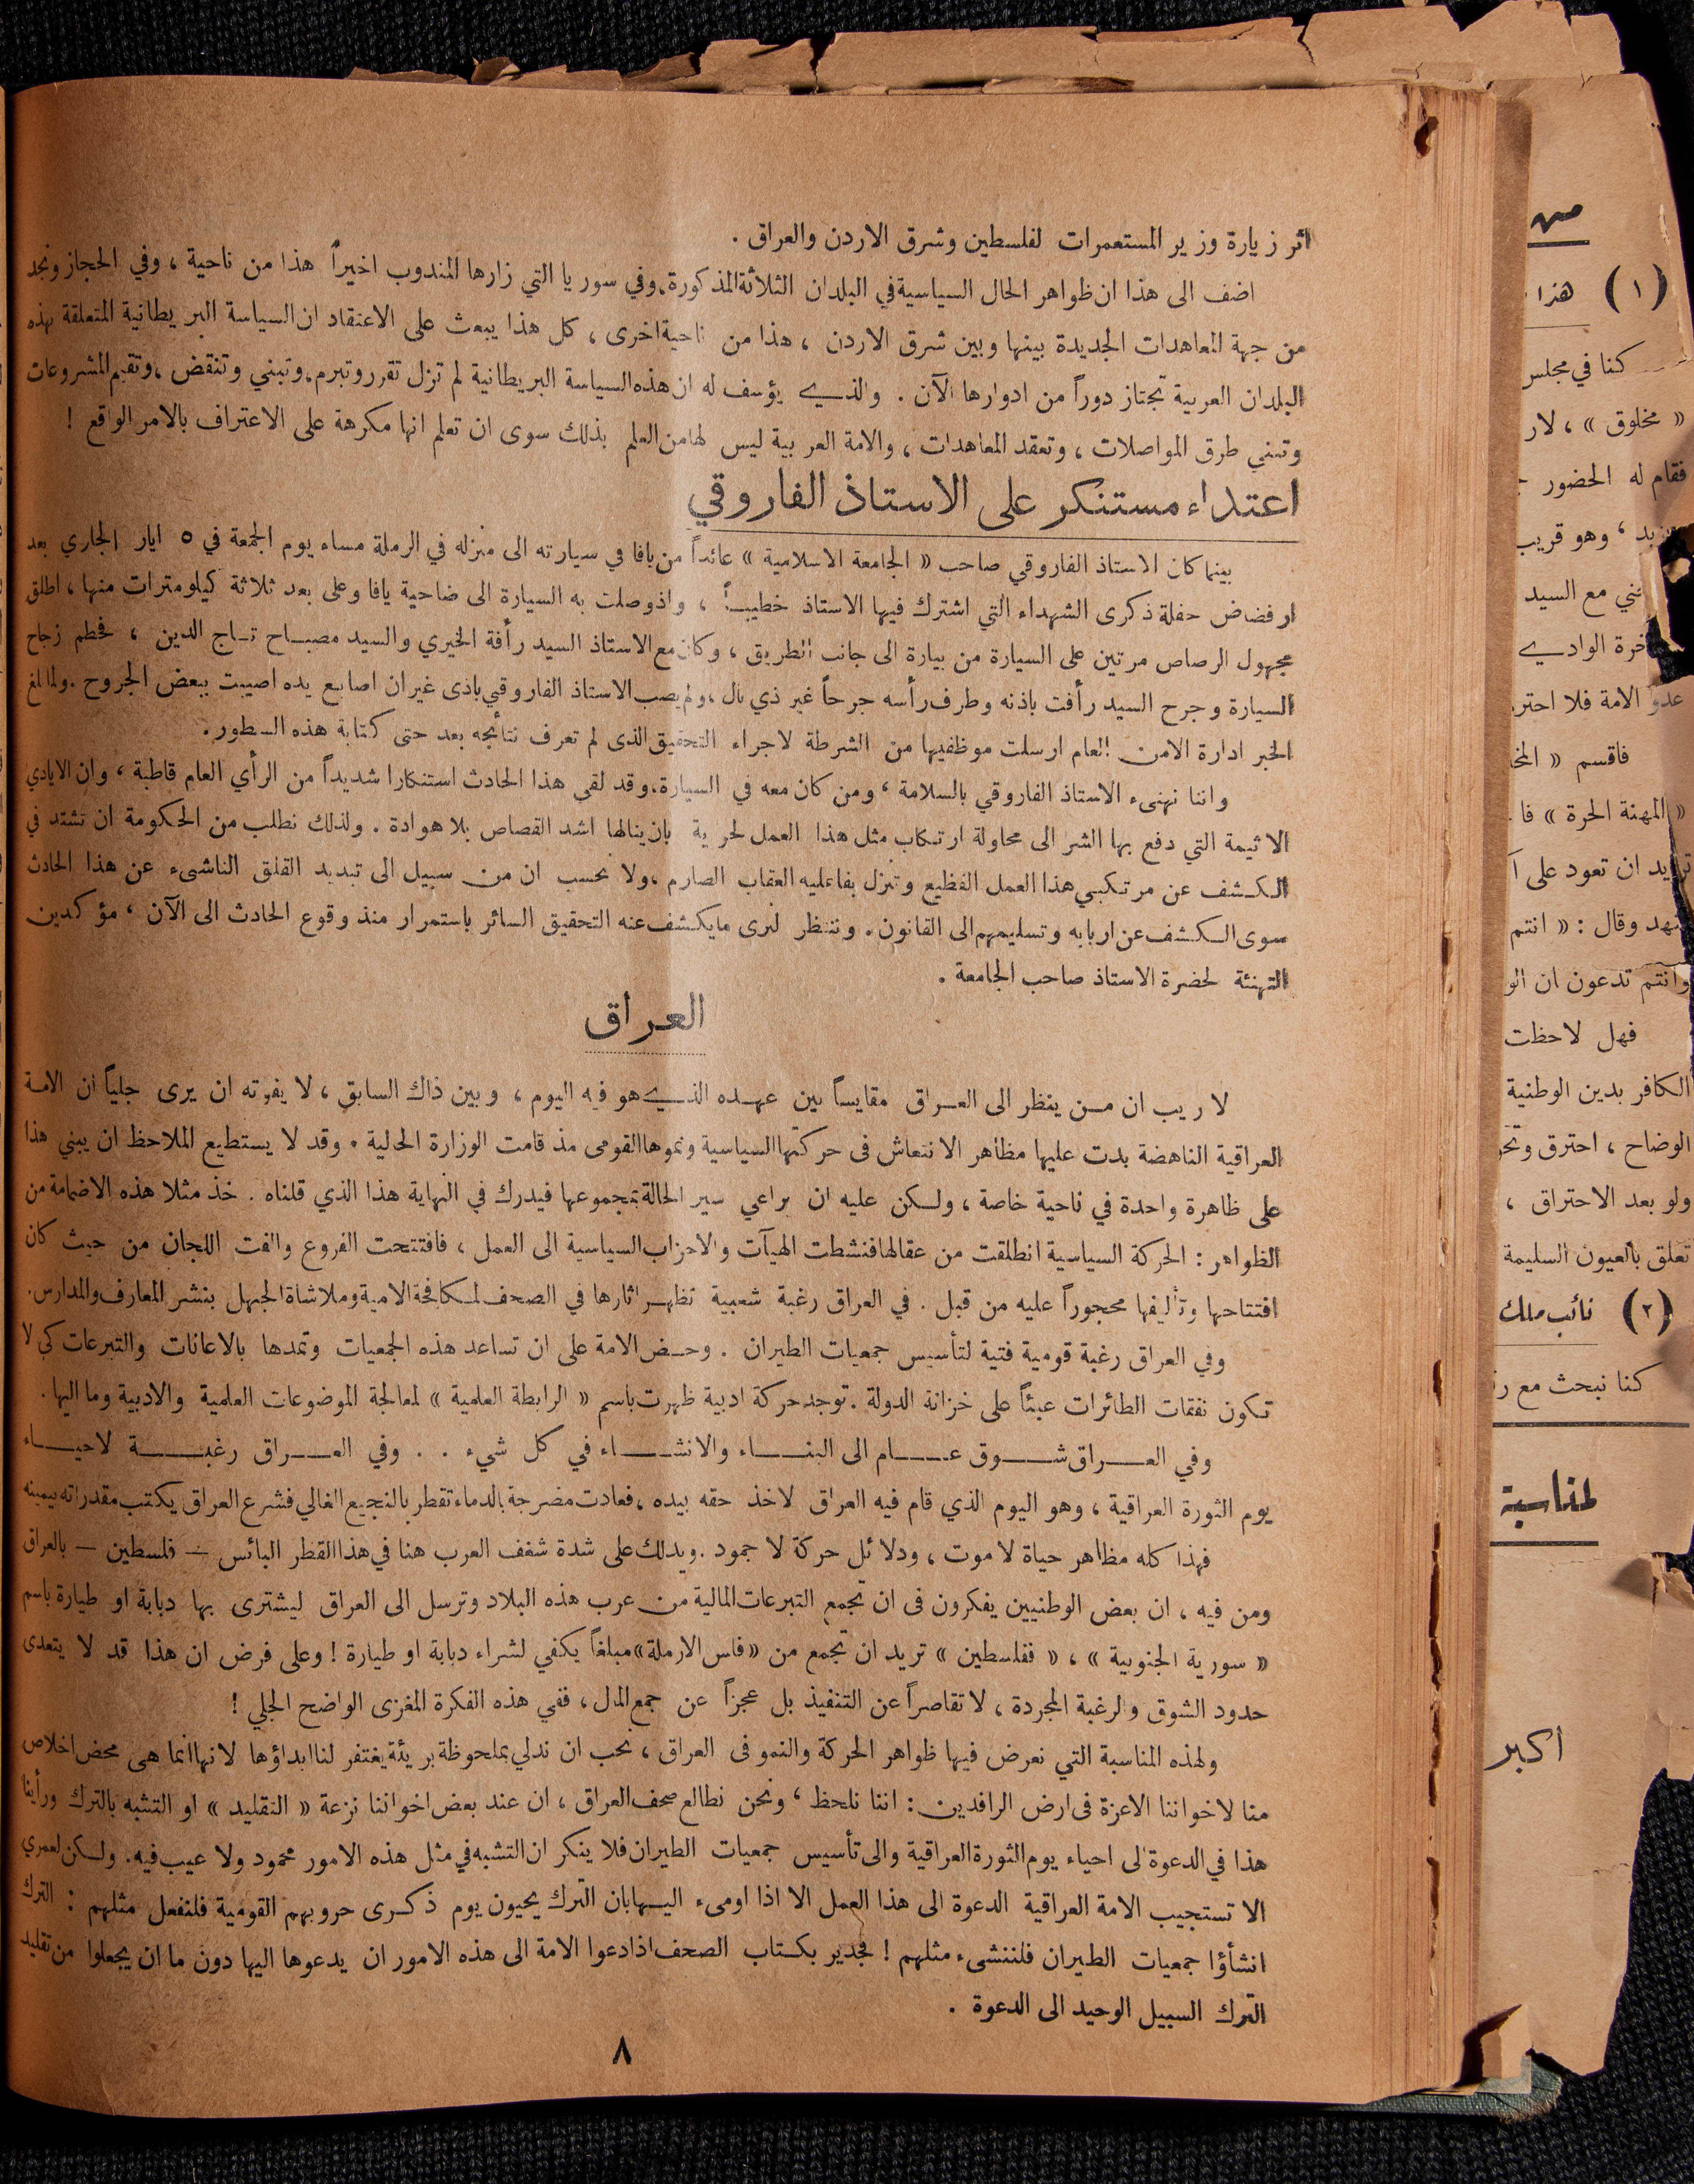 اثر زيارة وزير المستعمرات لفلسطين وشرق الاردن والعراق .
اضف الى هذا ان ظواهر الحال السياسية في البلدان الثلاثة المذكورة، وفي سوريا التي زارها المندوب اخيراً هذا من ناحية ، وفي الحجاز ونجد
من جهة المعاهدات الجديدة بينها وبين شرق الاردن ، هذا من ناحية اخرى ، كل هذا يبعث على الاعتقاد ان السياسة البريطانية المتعلقة بهذه
البلدان العربية تجتاز دوراً من ادوارها الآن . والذي يؤسف له ان هذه السياسة البريطانية لم تزل تقرر وتبرم، وتبني وتنقض ، وتقيم المشروعات
وتبني طرق المواصلات ، وتعقد المعاهدات ، والامة العربية ليس لها من العلم بذلك سوى ان تعلم انها مكرهة على الاعتراف بالامر الواقع !
اعتداء مستنكر على الاستاذ الفاروقي
بينما كان الاستاذ الفاروقي صاحب « الجامعة الاسلامية » عائداً من يافا في سيارته الى منزله في الرملة مساء يوم الجمعة في ٥ ايار الجاري بعد
ارفضاض حفلة ذكرى الشهداء التي اشترك فيها الاستاذ خطيباً ، واذ وصلت به السيارة الى ضاحية يافا وعلى بعد ثلاثة كيلومترات منها ، اطلق
مجهول الرصاص مرتين على السيارة من بيارة الى جانب الطريق ، وكان مع الاستاذ السيد رأفة الخيري والسيد مصباح تاج الدين ، فحطم زجاج
السيارة وجرح السيد رأفت باذنه وطرف رأسه جرحاً غير ذي بال ، ولم يصب الاستاذ الفاروقي باذى غير ان اصابع يده اصيبت ببعض الجروح . ولما بلغ
الخبر ادارة الامن العام ارسلت موظفيها من الشرطة لاجراء التحقيق الذي لم تعرف نتائجه بعد حتى كتابة هذه السطور .
واننا نهنىء الاستاذ الفاروقي بالسلامة ، ومن كان معه في السيارة، وقد لقي هذا الحادث استنكارا شديداً من الرأي العام قاطبة ، وان الايادي
الاثيمة التي دفع بها الشر الى محاولة ارتكاب مثل هذا العمل لحرية بان ينالها اشد القصاص بلا هوادة . ولذلك نطلب من الحكومة ان تشتد في
الكشف عن مرتكبي هذا العمل الفظيع وتنزل بفاعليه العقاب الصارم ، ولا نحسب ان من سبيل الى تبديد القلق الناشىء عن هذا الحادث
سوى الكشف عن اربابه وتسليمهم الى القانون . وننتظر لنرى ما يكشف عنه التحقيق السائر باستمرار منذ وقوع الحادث الى الآن ، مؤكدين
التهنئة لحضرة الاستاذ صاحب الجامعة .
العراق
لا ريب ان من ينظر الى العراق مقايساً بين عهده الذي هو فيه اليوم ، وبين ذاك السابق ، لا يفوته ان يرى جلياً ان الامة
العراقية الناهضة بدت عليها مظاهر الانتعاش في حركتها السياسية ونموها القومي مذ قامت الوزارة الحالية . وقد لا يستطيع الملاحظ ان يبني هذا
على ظاهرة واحدة في ناحية خاصة ، ولكن عليه ان يراعي سير الحالة بمجموعها فيدرك في النهاية هذا الذي قلناه . خذ مثلا هذه الاضمامة من
الظواهر : الحركة السياسية انطلقت من عقالها فنشطت الهيآت والاحزاب السياسية الى العمل ، فافتتحت الفروع والفت اللجان من حيث كان
افتتاحها وتأليفها محجوراً عليه من قبل . في العراق رغبة شعبية تظهر اثارها في الصحف لمكافحة الامية وملاشاة الجهل بنشر المعارف والمدارس.
وفي العراق رغبة قومية فتية لتأسيس جمعيات الطيران . وحض الامة على ان تساعد هذه الجمعيات وتمدها بالاعانات والتبرعات كي لا
تكون نفقات الطائرات عبئاً على خزانة الدولة . توجد حركة ادبية ظهرت باسم « الرابطة العلمية » لمعالجة الموضوعات العلمية والادبية وما اليها .
وفي العراق شوق عام الى البناء والانشاء في كل شيء . . وفي العراق رغبة لاحياء
يوم الثورة العراقية ، وهو اليوم الذي قام فيه العراق لاخذ حقه بيده ، فعادت مضرجة بالدماء تقطر بالنجيع الغالي فشرع العراق يكتب مقدراته بيمينه
فهذا كله مظاهر حياة لا موت ، ودلائل حركة لا جمود . ويدلك على شدة شغف العرب هنا في هذا القطر البائس – فلسطين – بالعراق
ومن فيه ، ان بعض الوطنيين يفكرون في ان تجمع التبرعات المالية من عرب هذه البلاد وترسل الى العراق ليشترى بها دبابة او طيارة باسم
« سورية الجنوبية » ، « ففلسطين » تريد ان تجمع من « فلس الارملة » مبلغاً يكفي لشراء دبابة او طيارة ! وعلى فرض ان هذا قد لا يتعدى
حدود الشوق والرغبة المجردة ، لا تقاصراً عن التنفيذ بل عجزاً عن جمع المال ، ففي هذه الفكرة المغزى الواضح الجلي !
ولهذه المناسبة التي نعرض فيها ظواهر الحركة والنمو في العراق ، نحب ان ندلي بملحوظة بريئة يغتفر لنا ابداؤها لانها انما هي محض اخلاص
منا لاخواننا الاعزة في ارض الرافدين : اننا نلحظ ، ونحن نطالع صحف العراق ، ان عند بعض اخواننا نزعة « التقليد » او التشبه بالترك ورأينا
هذا في الدعوة الى احياء يوم الثورة العراقية والى تأسيس جمعيات الطيران فلا ينكر ان التشبه في مثل هذه الامور محمود ولا عيب فيه . ولكن لعمري
الا تستجيب الامة العراقية الدعوة الى هذا العمل الا اذا اومىء اليها بان الترك يحيون يوم ذكرى حروبهم القومية فلنفعل مثلهم : الترك
انشأوا جمعيات الطيران فلننشىء مثلهم ! فجدير بكتاب الصحف اذا دعوا الامة الى هذه الامور ان يدعوها اليها دون ما ان يجعلوا من تقليد
الترك السبيل الوحيد الى الدعوة .
٨
من
(١) هذا
كنا في مجلس
« مخلوق » ، لار
فقام له الحضور
، وهو قريب
مع السيد
الوادي
عدو الامة فلا احتر
فاقسم « المخ
« المهنة الحرة » فا
تريد ان تعود على
وقال : « انتم
وانتم تدعون ان الو
فهل لاحظت
الكافر بدين الوطنية
الوضاح ، احترق وتحر
ولو بعد الاحتراق ،
تعلق بالعيون السليمة
(٢) نائب ملك
كنا نبحث مع
لمناسبة
اكبر